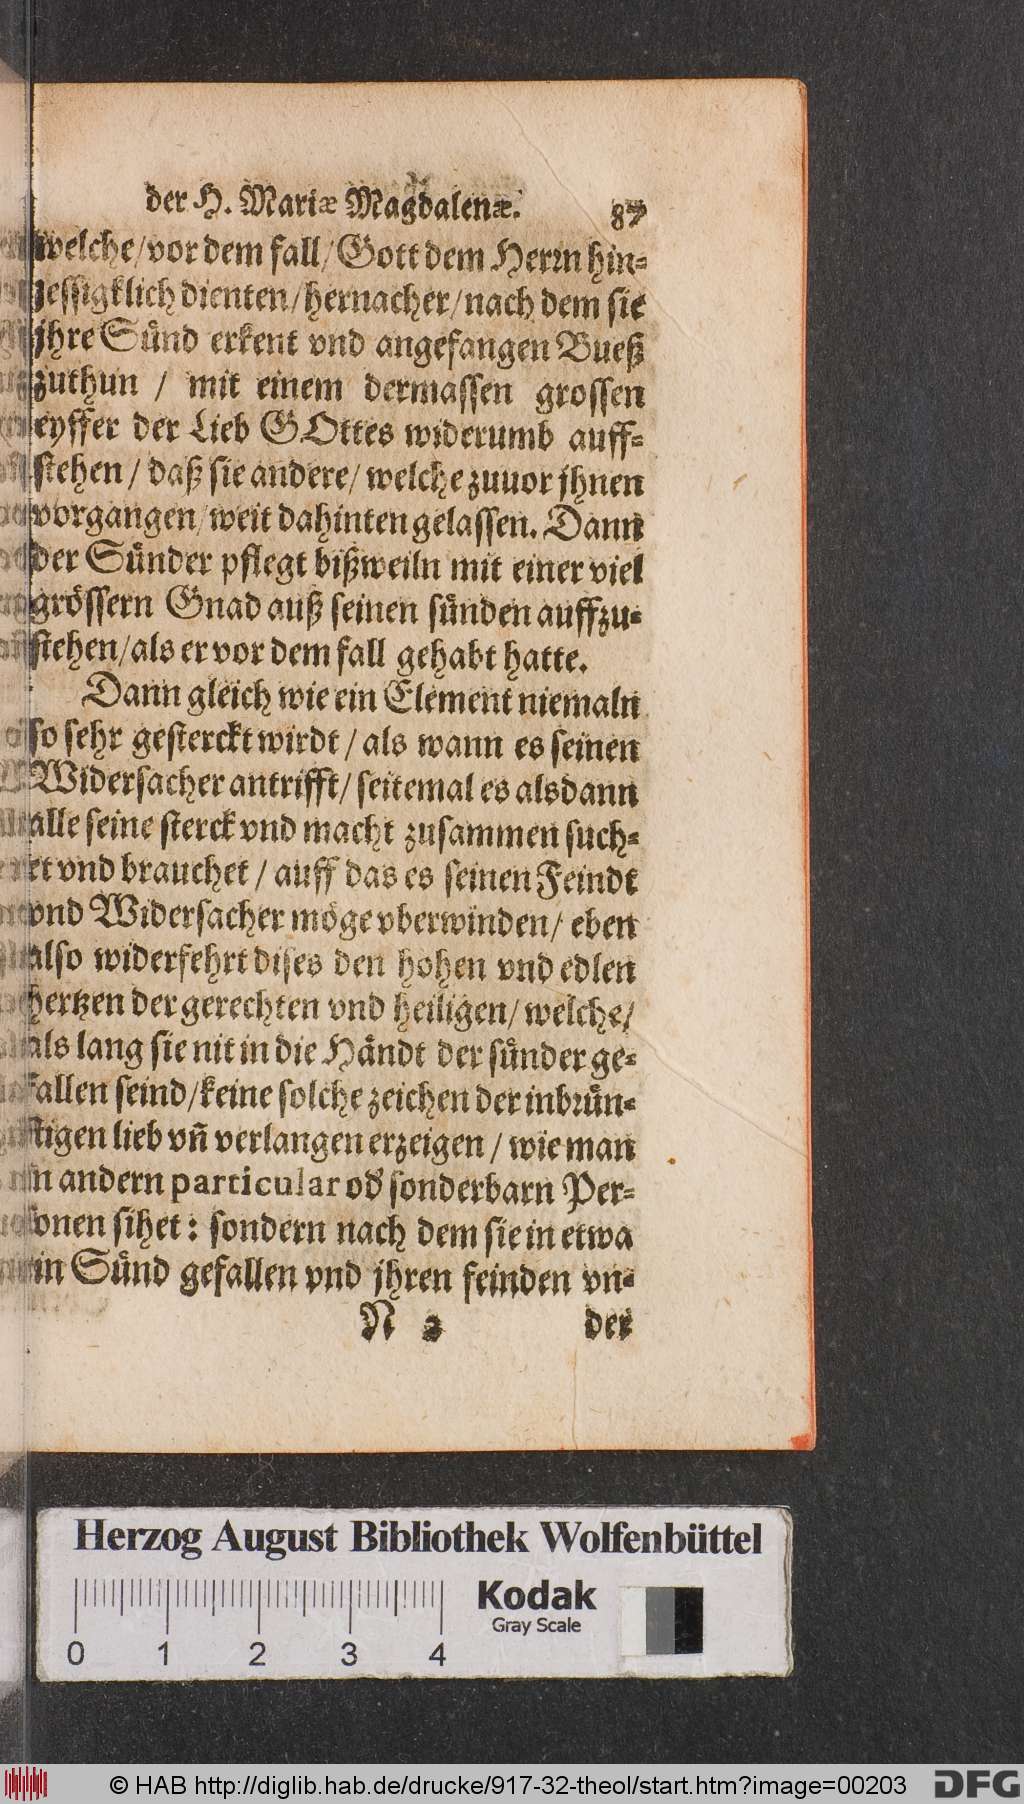 der H. Mariæ Magdalenæ. 87
welche/vor dem fall/Gott dem Herrn hin-
zessigklich dienten/hernacher/nach dem sie
jhre Sünd erkent vnd angefangen Bueß
zuthun / mit einem dermassen grossen
eyffer der Lieb GOttes widerumb auff-
stehen / daß sie andere/ welche zuuor jhnen
vorgangen/weit dahinten gelassen. Dann
der Sünder pflegt bißweiln mit einer viel
grössern Gnad auß seinen sünden auffzu-
stehen/als er vor dem fall gehabt hatte.
Dann gleich wie ein Element niemaln
so sehr gesterckt wirdt / als wann es seinen
Widersacher antrifft/ seitemal es alsdann
alle seine sterck vnd macht zusammen such-
et vnd brauchet / auff das es seinen Feindt
vnd Widersacher möge vberwinden/ eben
also widerfehrt dises den hohen vnd edlen
hertzen der gerechten vnd heiligen/ welche/
als lang sie nit in die Händt der sünder ge-
fallen seind/keine solche zeichen der inbrün-
stigen lieb vñ verlangen erzeigen / wie man
in andern particular od' sonderbarn Per-
sonen sihet: sondern nach dem sie in etwa
ein Sünd gefallen vnd jhren feinden vn-
N 2 der
Herzog August Bibliothek Wolfenbüttel
Kodak
Gray Scale
0 1 2 3 4
© HAB http://diglib.hab.de/drucke/917-32-theol/start.htm?image=00203
DFG